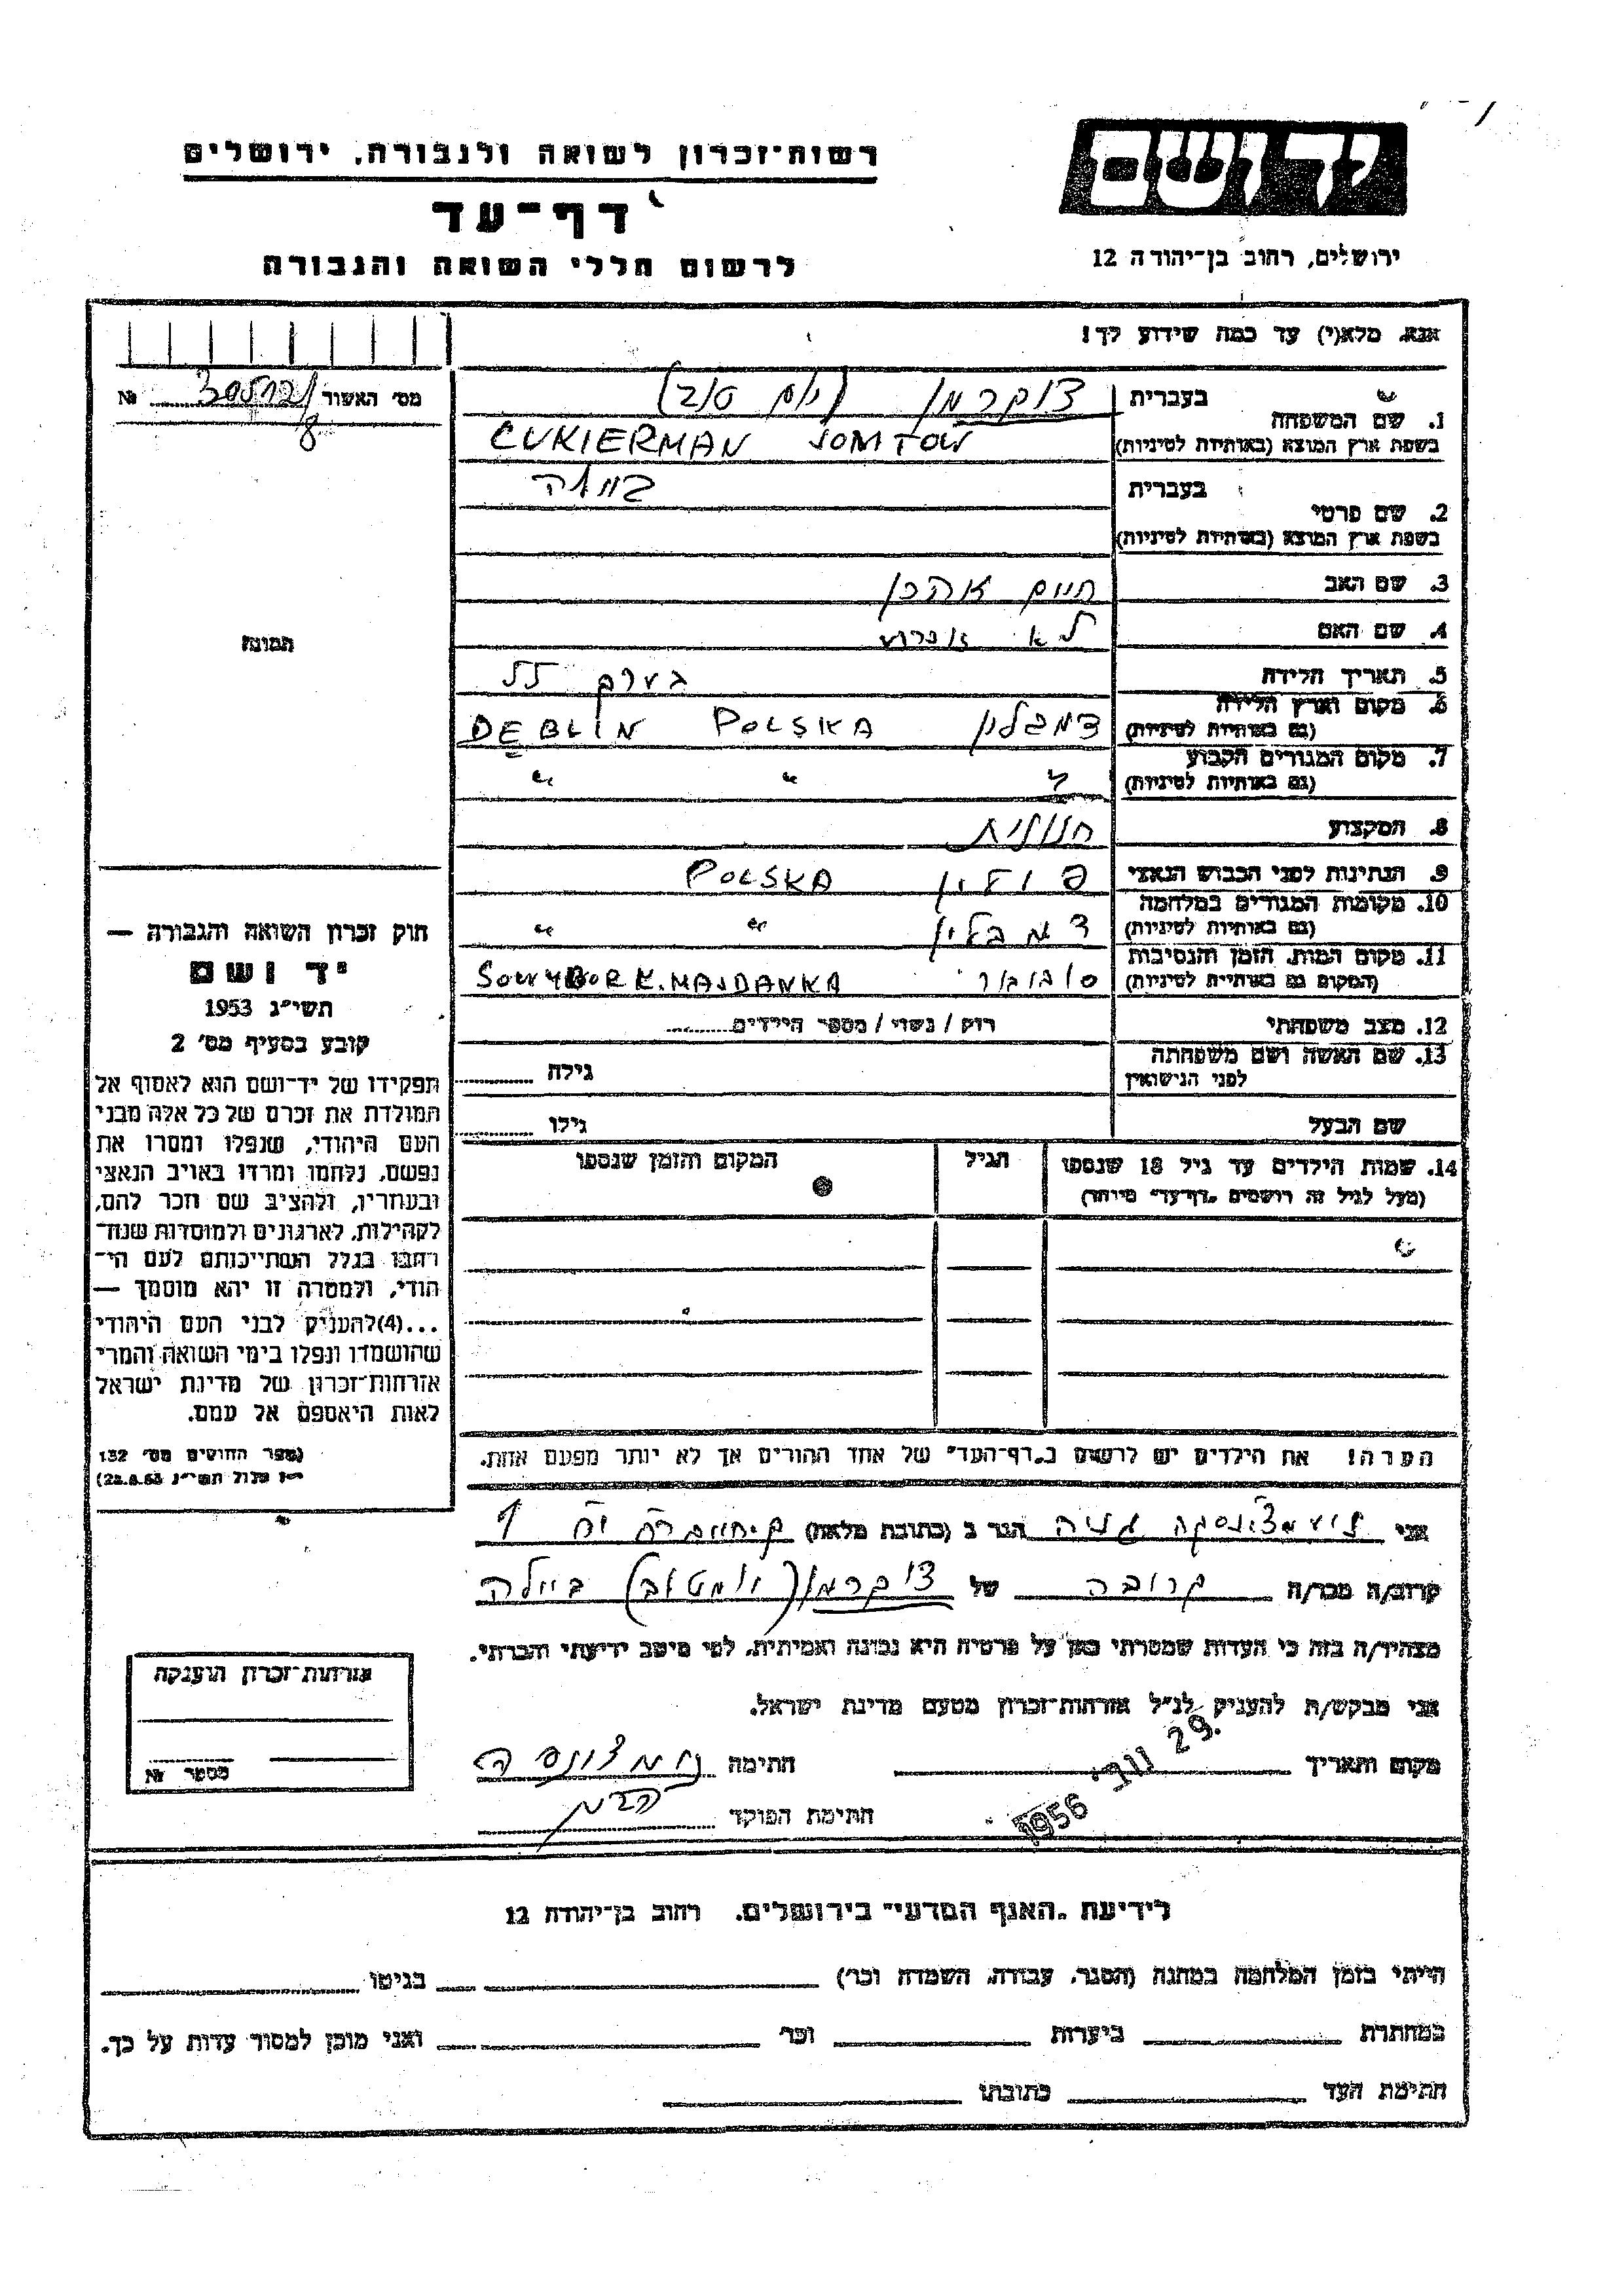 יד ושם
רשות־זכרון לשואה ולגבורה, ירושלים
דף־עד
לרשום חללי השואה והגבורה
ירושלים, רחוב בן־יהודה 12
אנא, מלא(י) עד כמה שידוע לך!
מס׳ האשור 30512/8 №
1. שם המשפחה
בעברית צוקרמן (יום טוב)
בשפת ארץ המוצא (באותיות לטיניות) CUKIERMAN JOMTOW
2. שם פרטי
בעברית ביילה
בשפת ארץ המוצא (באותיות לטיניות)
3. שם האב חיים אהרן
4. שם האם לאה
5. תאריך הלידה בערך
6. מקום וארץ הלידה (גם באותיות לטיניות) דמבלין POLSKA DEBLIN
7. מקום המגורים הקבוע (גם באותיות לטיניות) " " "
8. המקצוע חנונית
9. הנתינות לפני הכבוש הנאצי פולין POLSKA
10. מקומות המגורים במלחמה (גם באותיות לטיניות) דמבלין " "
11. מקום המות, הזמן והנסיבות (המקום גם באותיות לטיניות) סוביבור SOWYBOR K. MAJDANKA
12. מצב משפחתי רווק / נשוי / מספר הילדים
13. שם האשה ושם משפחתה לפני הנישואין גילה
שם הבעל גילו
14. שמות הילדים עד גיל 18 שנספו (מעל לגיל זה רושמים „דף־עד” מיוחד)
הגיל
המקום והזמן שנספו
הערה! את הילדים יש לרשום ב„דף־העד” של אחד ההורים אך לא יותר מפעם אחת.
תמונה
חוק זכרון השואה והגבורה —
יד ושם
תשי״ג 1953
קובע בסעיף מס׳ 2
תפקידו של יד־ושם הוא לאסוף אל
המולדת את זכרם של כל אלה מבני
העם היהודי, שנפלו ומסרו את
נפשם, נלחמו ומרדו באויב הנאצי
ובעוזריו, ולהציב שם וזכר להם,
לקהילות, לארגונים ולמוסדות שנח־
רבו בגלל השתייכותם לעם הי־
הודי, ולמטרה זו יהא מוסמך —
...(4)להעניק לבני העם היהודי
שהושמדו ונפלו בימי השואה והמרי
אזרחות־זכרון של מדינת ישראל
לאות היאספם אל עמם.
(ספר החוקים מס׳ 132
י״ז אלול תשי״ג 28.8.53)
אני הגר ב (כתובת מלאה)
קרוב/ה מכר/ה קרובה של צוקרמן (יומטוב) ביילה
מצהיר/ה בזה כי העדות שמסרתי כאן על פרטיה היא נכונה ואמיתית, לפי מיטב ידיעתי והכרתי.
אני מבקש/ת להעניק לנ״ל אזרחות־זכרון מטעם מדינת ישראל.
מקום ותאריך 29 נוב׳ 1956 חתימה
חתימת הפוקד
אזרחות־זכרון הוענקה
מספר №
לידיעת „האגף המדעי” בירושלים. רחוב בן־יהודה 12
הייתי בזמן המלחמה במחנה (הסגר, עבודה, השמדה וכו׳) בגיטו
במחתרת ביערות וכו׳ ואני מוכן למסור עדות על כך.
חתימת העד כתובתו